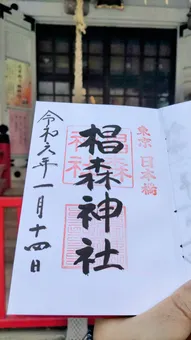 東京 日本橋
椙森神社
令和六年一月十四日